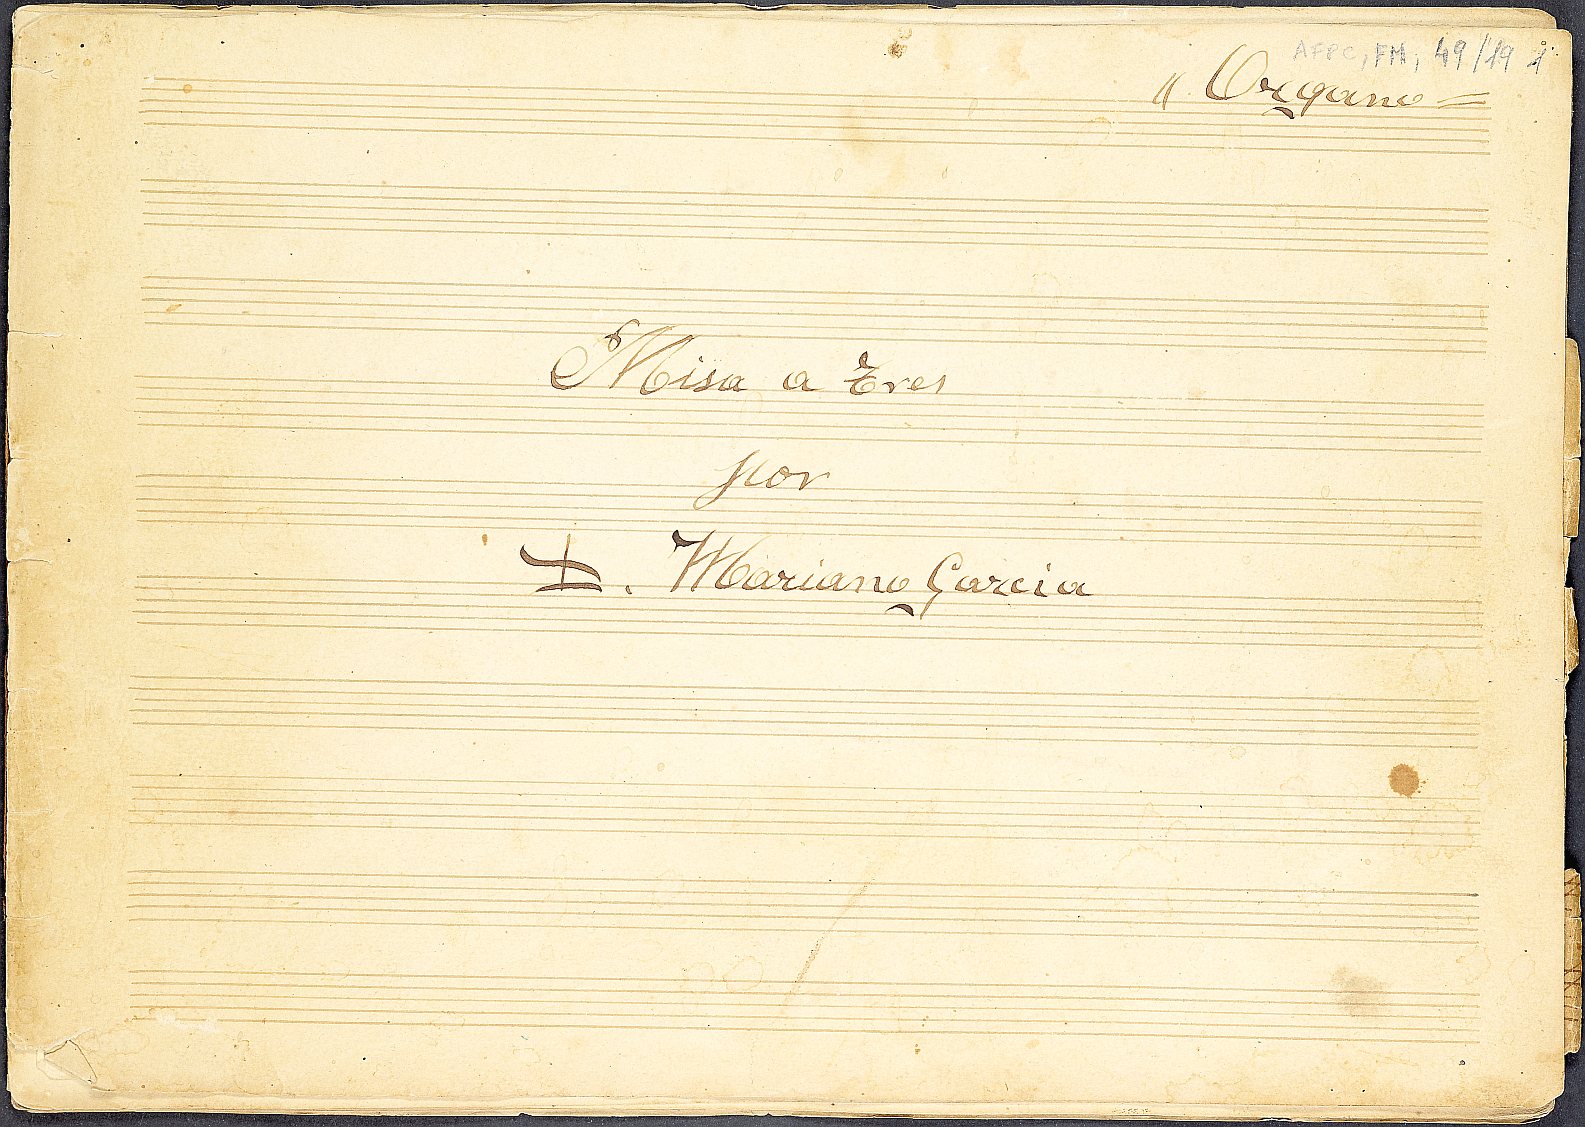 AFPC, FM, 49/19 1
" Organo =
Misa a Tres
por
D. Mariano Garcia